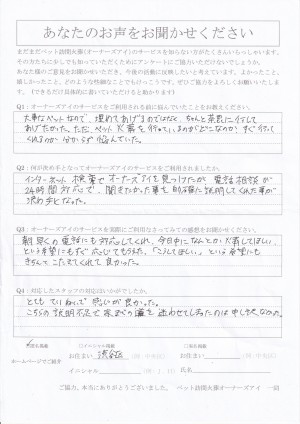 あなたのお声をお聞かせください
まだまだペット訪問火葬(オーナーズアイ)のサービスを知らない方がたくさんいらっしゃいます。
その方たちに少しでも知っていただくためにアンケートにご協力いただけないでしょうか。
あなた様のご意見をお聞かせいただき、今後の活動に反映したいと考えています。よかったこと、
嬉しかったこと、どのような些細なことでもけっこうです。ぜひご協力をよろしくお願いいたします。
(できるだけ具体的に書いていただけるとうれしいです)
Q1:オーナーズアイのサービスをご利用される前に悩んでいたことをお教えください。
大事なペットなので、埋めてあげるのではなく、ちゃんと葬儀に行して
あげたかった。ただ、ペット火葬を行っているのがどこなのか、すぐ行なって
くれるのか分からず悩んでいた。
Q2:何が決め手となってオーナーズアイのサービスをご利用されましたか。
インターネット検索でオーナーズアイを見つけたが、電話相談が
24時間対応で、聞きたかった事を的確に説明してくれた事が
決め手となった。
Q3:オーナーズアイのサービスを実際にご利用なさって為ての感想をお聞かせください。
朝早くの電話にも対応してくれ、今日中になんとか火葬してほしい
という希望にもすぐ応じてもらえた。「こうしてほしい」という希望にも
きちんとこたえてくれて良かった。
Q4:対応したスタッフの対応はいかがでしたか。
とてもていねいで感じが良かった。
こちらの説明不足で家までの道を迷わせてしまったのは申し訳なかった。
ホームページでご紹介
お住まい 渋谷区
イニシャル
お住まい
ご協力、本当にありがとうございました。 ペット訪問火葬オーナーズアイ 一同